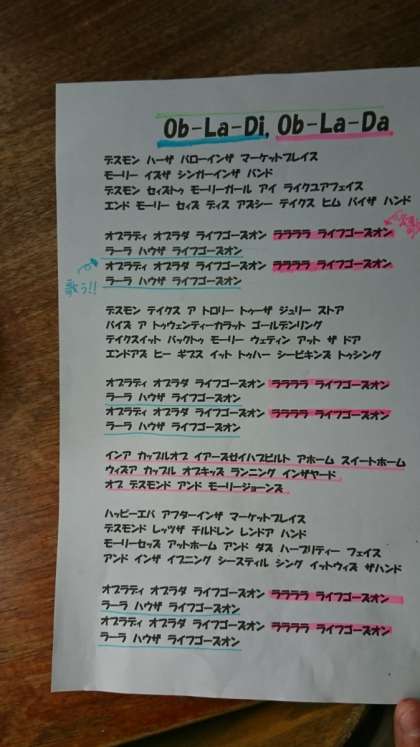 Ob-La-Di, Ob-La-Da
デスモン ハーザ バローインザ マーケットプレイス
モーリー イズザ シンガーインザ バンド
デスモン セイズトゥ モーリーガール アイ ライクユアフェイス
エンド モーリー セイズ ディス アズシー テイクス ヒム バイザ ハンド
オブラディ オブラダ ライフゴーズオン ララララ ライフゴーズオン
ラーラ ハウザ ライフゴーズオン
オブラディ オブラダ ライフゴーズオン ララララ ライフゴーズオン
歌う!!
ラーラ ハウザ ライフゴーズオン
デスモン テイクス ア トロリー トゥーザ ジュリー ストア
バイズ ア トゥウェンティーカラット ゴールデンリング
テイクスイット バックトゥ モーリー ウェティン アット ザ ドア
エンドアズ ヒー ギブス イット トゥハー シービギンズ トゥシング
オブラディ オブラダ ライフゴーズオン ララララ ライフゴーズオン
ラーラ ハウザ ライフゴーズオン
オブラディ オブラダ ライフゴーズオン ララララ ライフゴーズオン
ラーラ ハウザ ライフゴーズオン
インア カップルオブ イアーズゼイハブビルト アホーム スイートホーム
ウィズア カップル オブキッズ ランニング インザヤード
オブ デスモンド アンド モーリージョーンズ
ハッピーエバ アフターインザ マーケットプレイス
デスモンド レッツザ チルドレン レンドア ハンド
モーリーセッズ アットホーム アンド ダズ ハープリティー フェイス
アンド インザ イブニング シースティル シング イットウィズ ザハンド
オブラディ オブラダ ライフゴーズオン ララララ ライフゴーズオン
ラーラ ハウザ ライフゴーズオン
オブラディ オブラダ ライフゴーズオン ララララ ライフゴーズオン
ラーラ ハウザ ライフゴーズオン